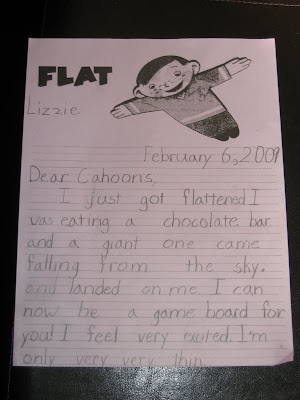 FLAT
Lizzie
February 6, 2009
Dear Cahoons,
I just got flattened I
was eating a chocolate bar
and a giant one came
falling from the sky.
and landed on me. I can
now be a game board for
you! I feel very excited. I'm
only very very thin.